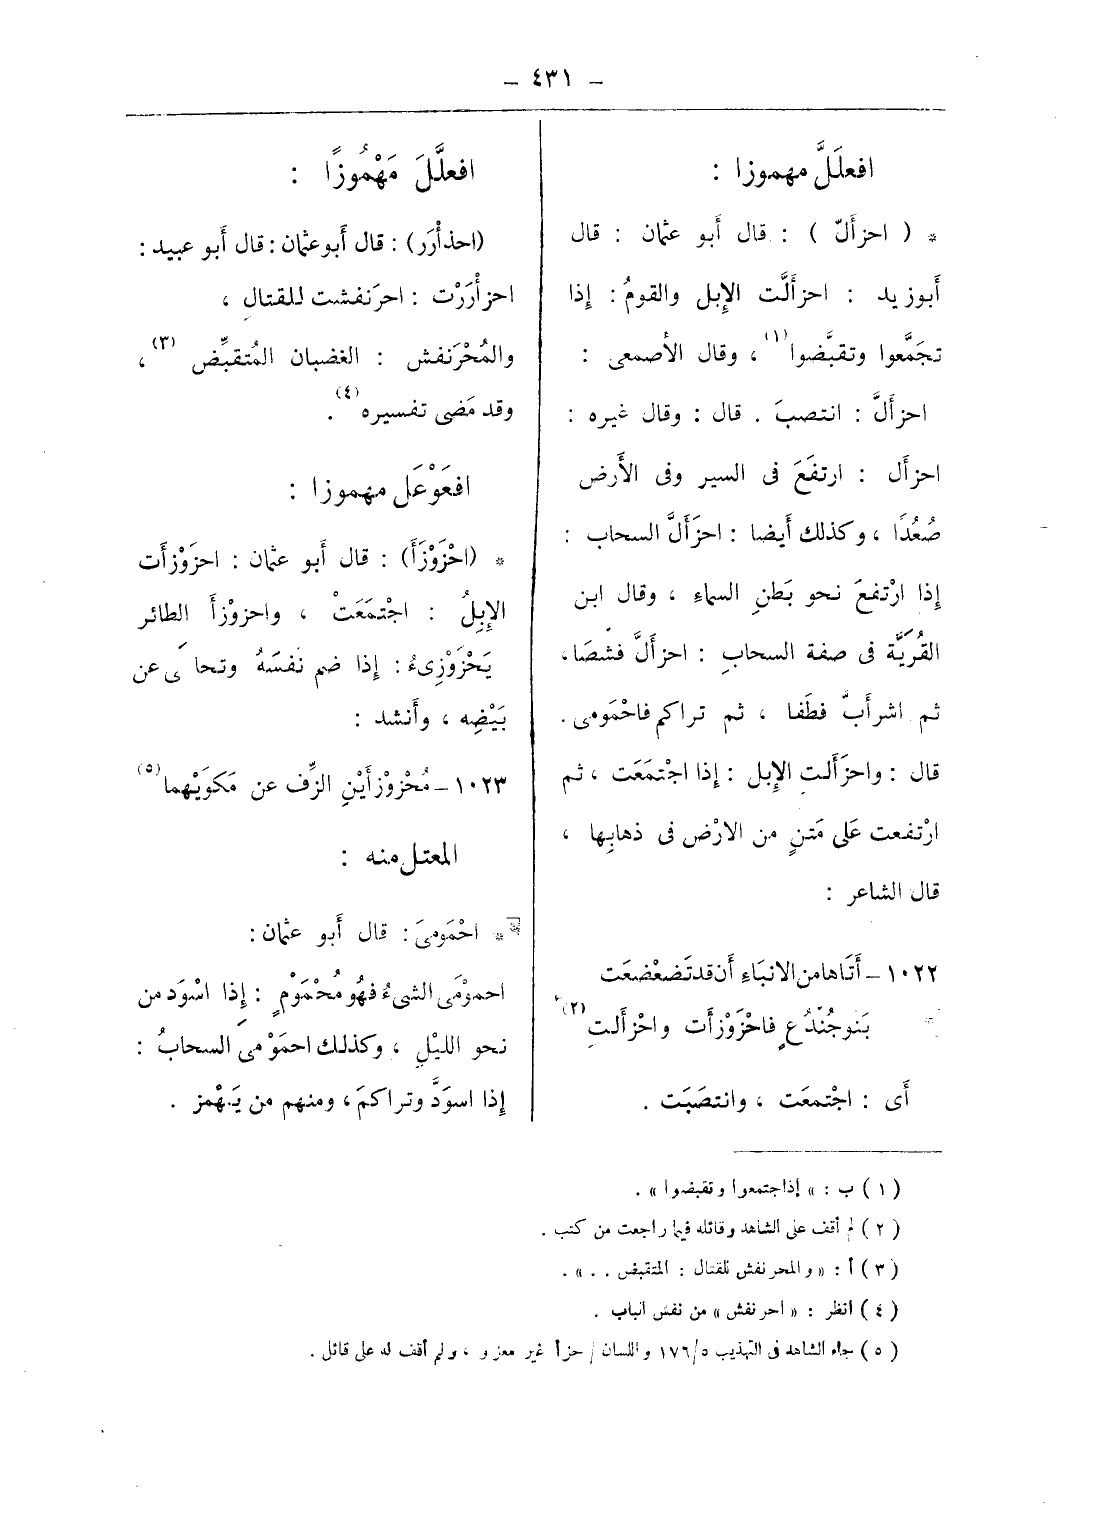 – ٤٣١ –
افعلَلَّ مهموزا :
* ( احزأَلّ ) : قال أَبو عثمان : قال
أَبوزيد : احزأَلَّت الإبل والقومُ : إذا
تجمَّعوا وتقبَّضوا(١) ، وقال الأصمعى :
احزأَلَّ : انتصبَ . قال : وقال غيره :
احزأَل : ارتفَعَ فى السير وفى الأَرض
صُعُدًا ، وكذلك أَيضا : احزَأَلَّ السحاب :
إذا ارْتفعَ نحو بَطنِ السماء ، وقال ابن
القُرِيَّة فى صفة السحابِ : احزألَّ فشصَا،
ثم اشرأَبَّ فطَفا ، ثم تراكم فاحْمَومى .
قال : واحزَأَلتِ الإبل : إذا اجْتمَعَت ، ثم
ارْتفعت عَلى مَتنٍ من الارْض فى ذهابِها ،
قال الشاعر :
١٠٢٢ – أَتَاها من الانبَاءِ أَن قد تَضعْضعَت
بَنو جُنْدُعٍ فاحْزَوْزأَت واحْزألتِ(٢)
أَى : اجْتمعَت ، وانتصَبَت .
افعلَّلَ مَهْمُوزًا :
(احذأْرَر) : قال أَبوعثمان : قال أَبو عبيد :
احزأْرَرْت : احرَنفشت للقتالِ ،
والمُحْرَنفش : الغضبان المُتقبِّض (٣) ،
وقد مَضى تفسيره(٤) .
افعَوْعَل مهموزا :
* (احْزَوْزَأَ) : قال أَبو عثمان : احزوْزأَت
الإِبِلُ : اجْتمَعَتْ ، واحزوْزأَ الطائر
يَحْزَوْزِىءُ : إذا ضم نفسَهُ وتجافى عن
بَيْضِه ، وأَنشد :
١٠٢٣ – مُحْزوْزأَيْنِ الزِّف عن مَكَوَيْهما(٥)
المعتل منه :
* احْمَومىَ : قال أَبو عثمان :
احموْمَى الشىءُ فهُو مُحْمَوْمٍ : إذا اسْوَد من
نحو الليْلِ ، وكذلك احمَوْمى السحابُ :
إذا اسودَّ وتراكمَ ، ومنهم من يَهْمز .
( ١ ) ب : » إذا جتمعوا وتقبضوا » .
( ٢ ) لم أقف على الشاهد وقائله فيما راجعت من كتب .
( ٣ ) أ : « والمحرنفش للقتال : المتقبض . . » .
( ٤ ) انظر : « احرنفش » من نفس الباب .
( ٥ ) جاء الشاهد فى التهذيب ٥/١٧٦ واللسان / حزأ غير معزو ، ولم أقف له على قائل .